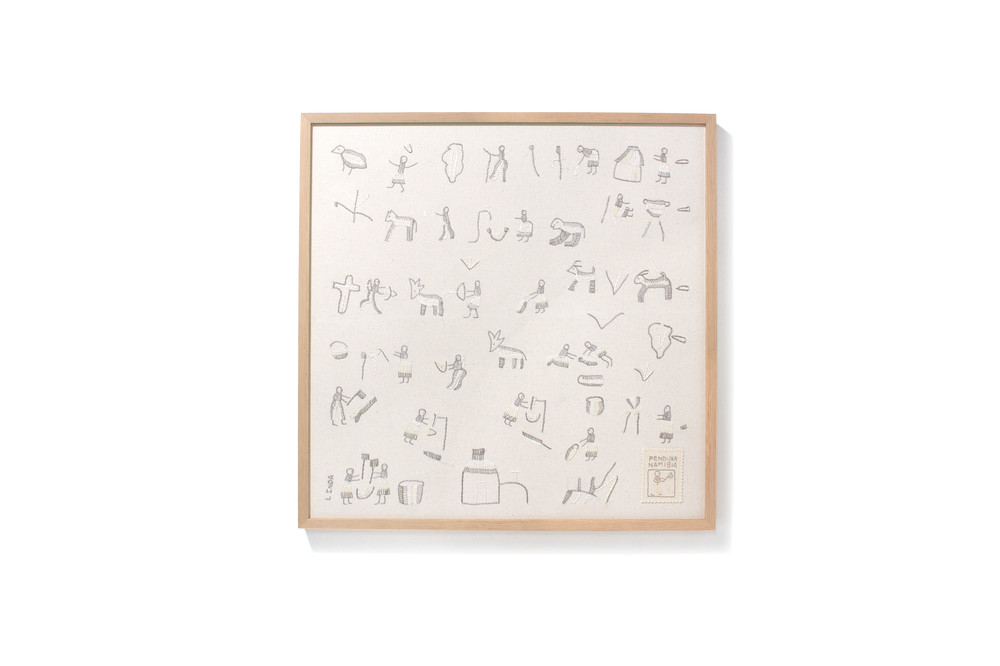 LINDA
PENDUKA
NAMIBIA